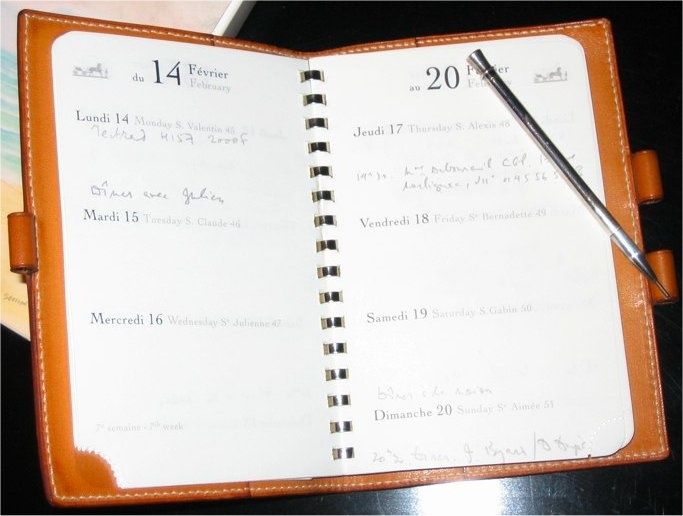 du 14 Février
February
Lundi 14 Monday S. Valentin 45
4157 2000F
Dîner avec Julien
Mardi 15 Tuesday S. Claude 46
Mercredi 16 Wednesday Sᵗ Julienne 47
7ᵉ semaine - 7ᵗʰ week
au 20 Février
February
Jeudi 17 Thursday S. Alexis 48
Vendredi 18 Friday Sᵗ Bernadette 49
Samedi 19 Saturday S Gabin 50
Dîner à la maison
Dimanche 20 Sunday Sᵗ Aimée 51